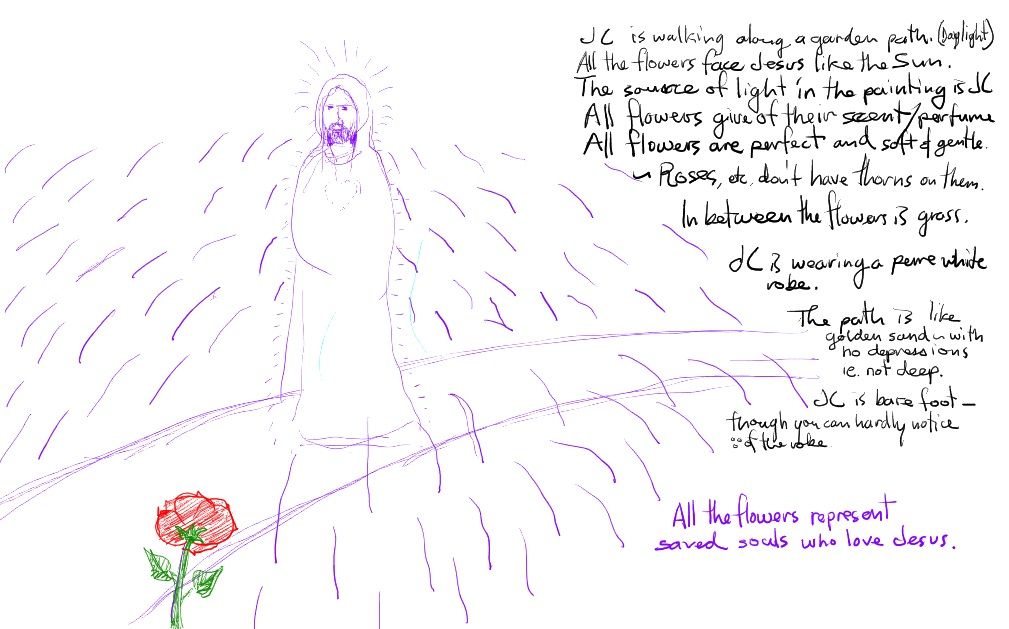 JC is walking along a garden path. (Daylight)
All the flowers face Jesus like the Sun.
The source of light in the painting is JC
All flowers give of their scent/perfume
All flowers are perfect and soft & gentle.
~ Roses, etc, don't have thorns on them.
In between the flowers is grass.
JC is wearing a pure white
robe.
The path is like
golden sand ~ with
no depressions
ie. not deep.
JC is bare foot –
though you can hardly notice
∵ of the robe
All the flowers represent
saved souls who love Jesus.